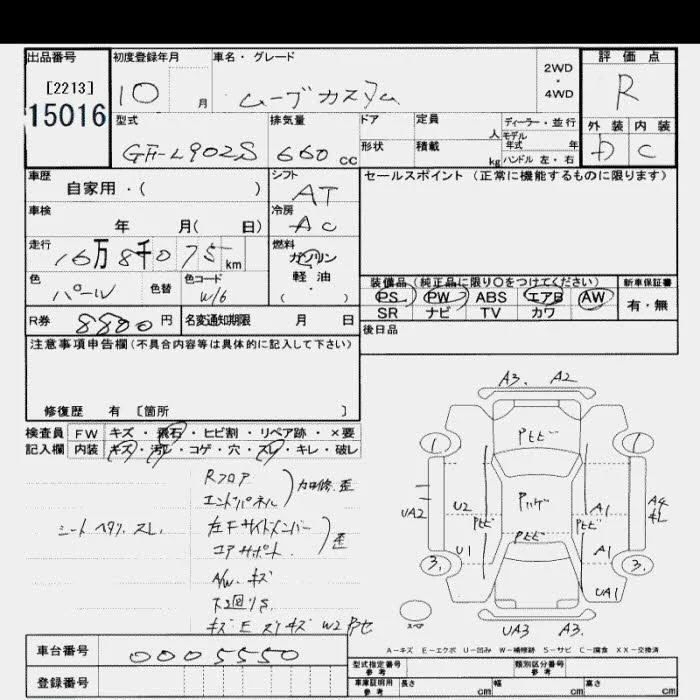 出品番号 初度登録年月 車名・グレード 評価点
[2213]
15016
10 月 ムーブカスタム 2WD ・ 4WD R
型式 排気量 ドア 定員 人 ディーラー・並行
モデル年式 年
外装 内装
GF-L902S 660 cc 形状 積載 kg ハンドル 左・右 D C
車歴 シフト セールスポイント (正常に機能するものに限ります)
自家用・( ) AT
車検 冷房
年 月( 日) AC
走行 燃料
16万8千075 km ガソリン
軽・油
( )
色 色替 色コード
パール W16
装備品 (純正品に限り○をつけてください) 新車保証書
PS PW ABS エアB AW 有・無
SR ナビ TV カワ
R券 8800 円 名変通知期限 月 日
後日品
注意事項申告欄(不具合内容等は具体的に記入して下さい)
修復歴 有 [箇所 ]
検査員 FW キズ・飛石・ヒビ割・リペア跡・×要
記入欄 内装 キズ・汚レ・コゲ・穴・スレ・キレ・破レ
Rフロア
エンドパネル
加修.歪
シート ヘタリ、スレ.
左Fサイドメンバー
コアサポート
歪
A/W.キズ
下廻りS
キズ E スリキズ W2 Pセ
A3. A2
Pトビ
1 1
UA2 U2 Pトビ Pハゲ Pトビ A1 A4
キレ
U1 Pトビ A1
3. 3.
UA1
スペ UA3 A3.
A－キズ E－エクボ U－凹み W－補修跡 S－サビ C－腐食 XX－交換済
車台番号 0005550
登録番号
型式指定番号 参考 類別区分番号 参考
車庫証明用 参考 長さ cm 幅 cm 高さ cm